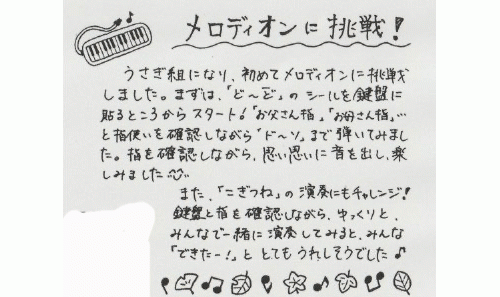 メロディオンに挑戦!
うさぎ組になり、初めてメロディオンに挑戦
しました。まずは、「ど〜ど」のシールを鍵盤に
貼るところからスタート!「お父さん指」「お母さん指」…
と指使いを確認しながら「ド〜ソ」まで弾いてみまし
た。指を確認しながら、思い思いに音を出し、楽
しみました
また、「こぎつね」の演奏にもチャレンジ!
鍵盤と指を確認しながら、ゆっくりと、
みんなで一緒に演奏してみると、みんな
「できたー!」と とてもうれしそうでした♪